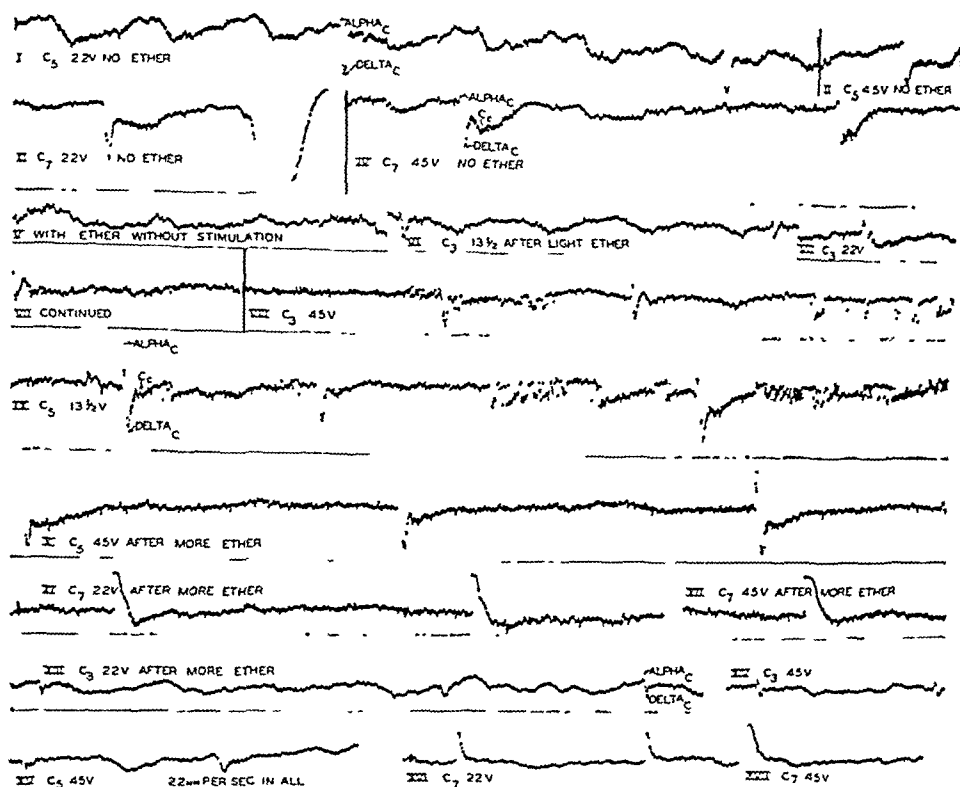 ALPHA C
I C5 22V NO ETHER
DELTA C
II C5 45V NO ETHER
ALPHA C
CC
DELTA C
II C7 22V NO ETHER
IV C7 45V NO ETHER
V WITH ETHER WITHOUT STIMULATION
VI C3 13½ AFTER LIGHT ETHER
VII C3 22V
VII CONTINUED
VIII C3 45V
ALPHA C
CC
IX C5 13½V
DELTA C
X C5 45V AFTER MORE ETHER
XI C7 22V AFTER MORE ETHER
XII C7 45V AFTER MORE ETHER
XIII C3 22V AFTER MORE ETHER
ALPHA C
C3 45V
DELTA C
C5 45V
22MM PER SEC IN ALL
C7 22V
C7 45V